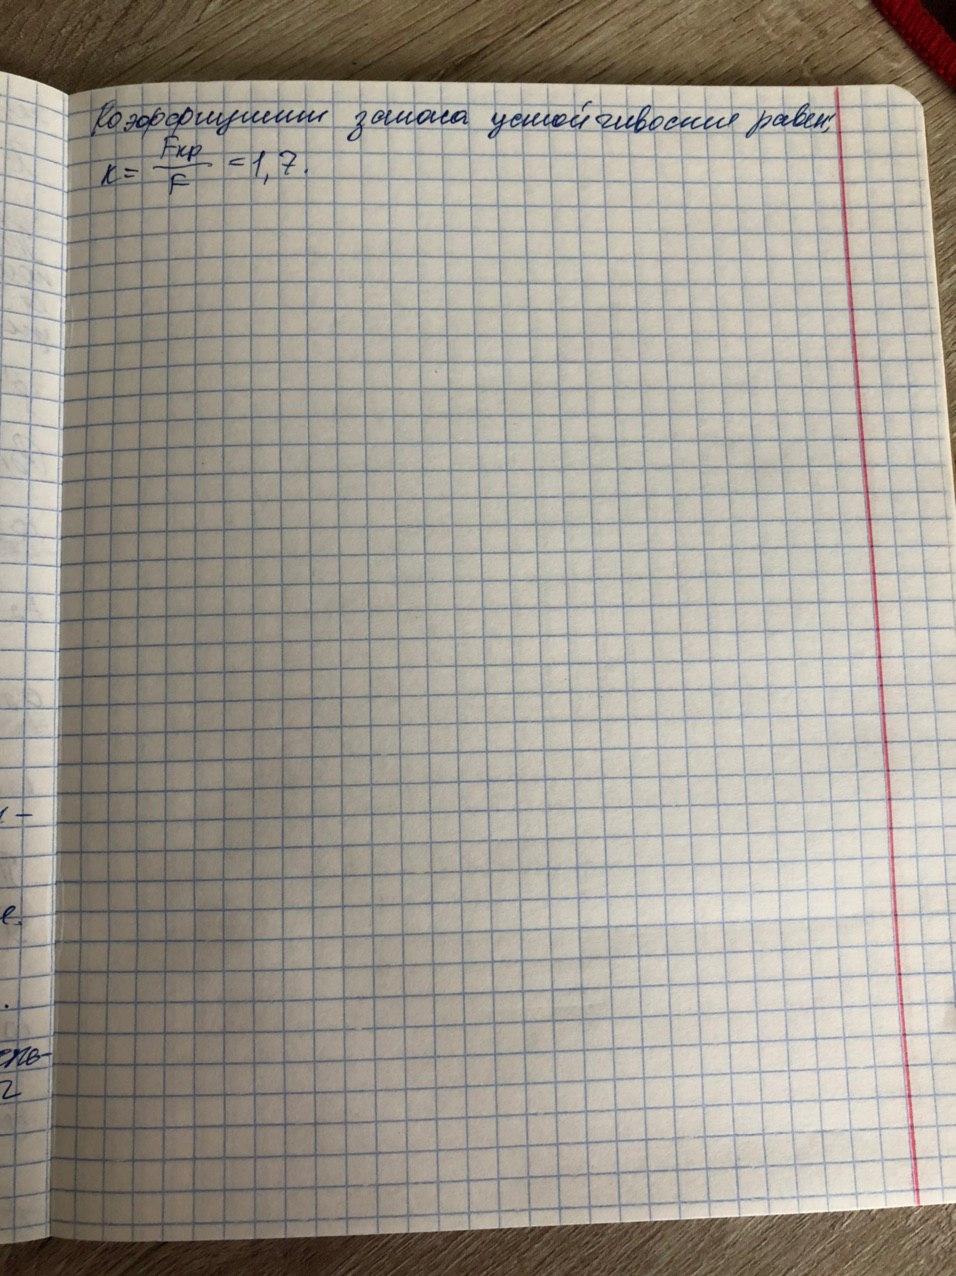 Коэффициент запаса устойчивости равен;
к = Fкр / F = 1,7.